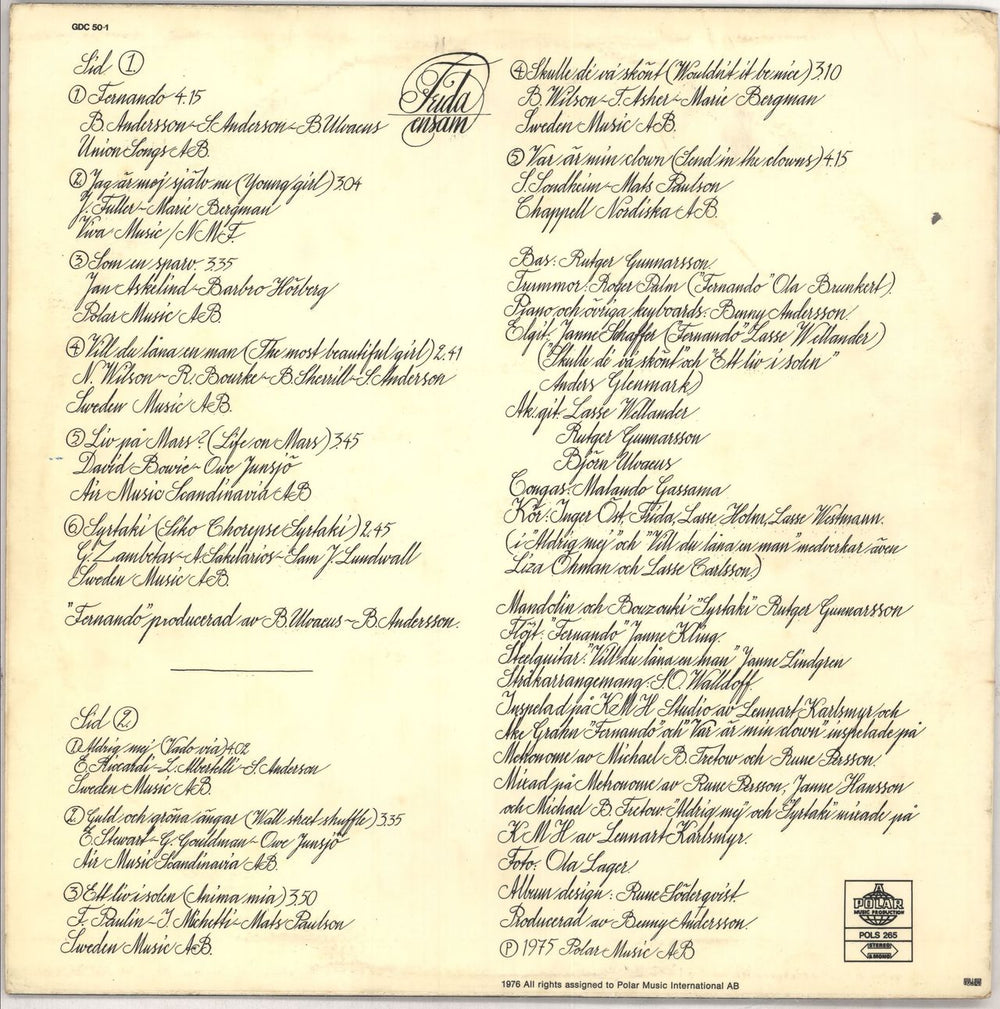 GDC 50-1
Frida
ensam
Sid 1
① Fernando 4.15
B. Andersson - S. Anderson - B. Ulvaeus
Union Songs AB.
② Jag är mej själv nu (Young girl) 3.04
J. Fuller - Marie Bergman
Viva Music / N.M.F.
③ Som en sparv. 3.35
Jan Askelind - Barbro Hörberg
Polar Music AB.
④ Vill du låna en man (The most beautiful girl) 2.41
N. Wilson - R. Bourke - B. Sherrill - S. Anderson
Sweden Music AB.
⑤ Liv på Mars? (Life on Mars) 3.45
David Bowie - Owe Junsjö
Air Music Scandinavia AB
⑥ Syrtaki (Siko Chorepse Syrtaki) 2.45
G. Zambetas - A. Sakelarios - Sam J. Lundwall
Sweden Music AB.
"Fernando" producerad av B. Ulvaeus - B. Andersson.
Sid 2
① Aldrig mej (Vado via) 4.02
E. Riccardi - L. Albertelli - S. Anderson
Sweden Music AB.
② Guld och gröna ängar (Wall street shuffle) 3.35
E. Stewart - G. Gouldman - Owe Junsjö
Air Music Scandinavia AB.
③ Ett liv i solen (Anima mia) 3.50
F. Paulin - I. Michetti - Mats Paulson
Sweden Music AB.
④ Skulle di va skönt (Wouldn't it be nice) 3.10
B. Wilson - T. Asher - Marie Bergman
Sweden Music AB.
⑤ Var är min clown (Send in the clowns) 4.15
S. Sondheim - Mats Paulson
Chappell Nordiska AB.
Bas: Rutger Gunnarsson.
Trummor: Roger Palm ("Fernando" Ola Brunkert).
Piano och övriga keyboards: Benny Andersson.
Elgit. Janne Schaffer ("Fernando" Lasse Wellander)
("Skulle di va skönt" och "Ett liv i solen"
Anders Glenmark)
Ak.git. Lasse Wellander
Rutger Gunnarsson
Björn Ulvaeus
Congas: Malando Gassama
Kör: Inger Öst, Frida, Lasse Holm, Lasse Westmann.
(i "Aldrig mej" och "Vill du låna en man" medverkar även
Liza Öhman och Lasse Carlsson)
Mandolin och Bouzouki "Syrtaki" Rutger Gunnarsson
Flöjt: "Fernando" Janne Kling.
Steelguitar: "Vill du låna en man" Janne Lindgren
Stråkarrangemang: S.O. Walldoff.
Inspelad på KMH Studio av Lennart Karlsmyr och
Åke Grahn "Fernando" och "Var är min clown" inspelade på
Metronome av Michael B. Tretow och Rune Persson.
Mixad på Metronome av Rune Persson, Janne Hansson
och Michael B. Tretow. "Aldrig mej" och "Syrtaki" mixade på
KMH av Lennart Karlsmyr.
Foto: Ola Lager
Album design: Rune Söderqvist.
Producerad av Benny Andersson.
Ⓟ 1975 Polar Music AB
A
POLAR
MUSIC PRODUCTION
POLS 265
STEREO
& MONO
1976 All rights assigned to Polar Music International AB